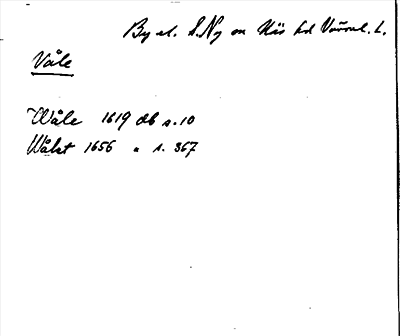 By et. S. Ny sn Näs hd Värml. L.
Våle
Wåle 1619 db s. 10
Wålet 1656 " s. 367